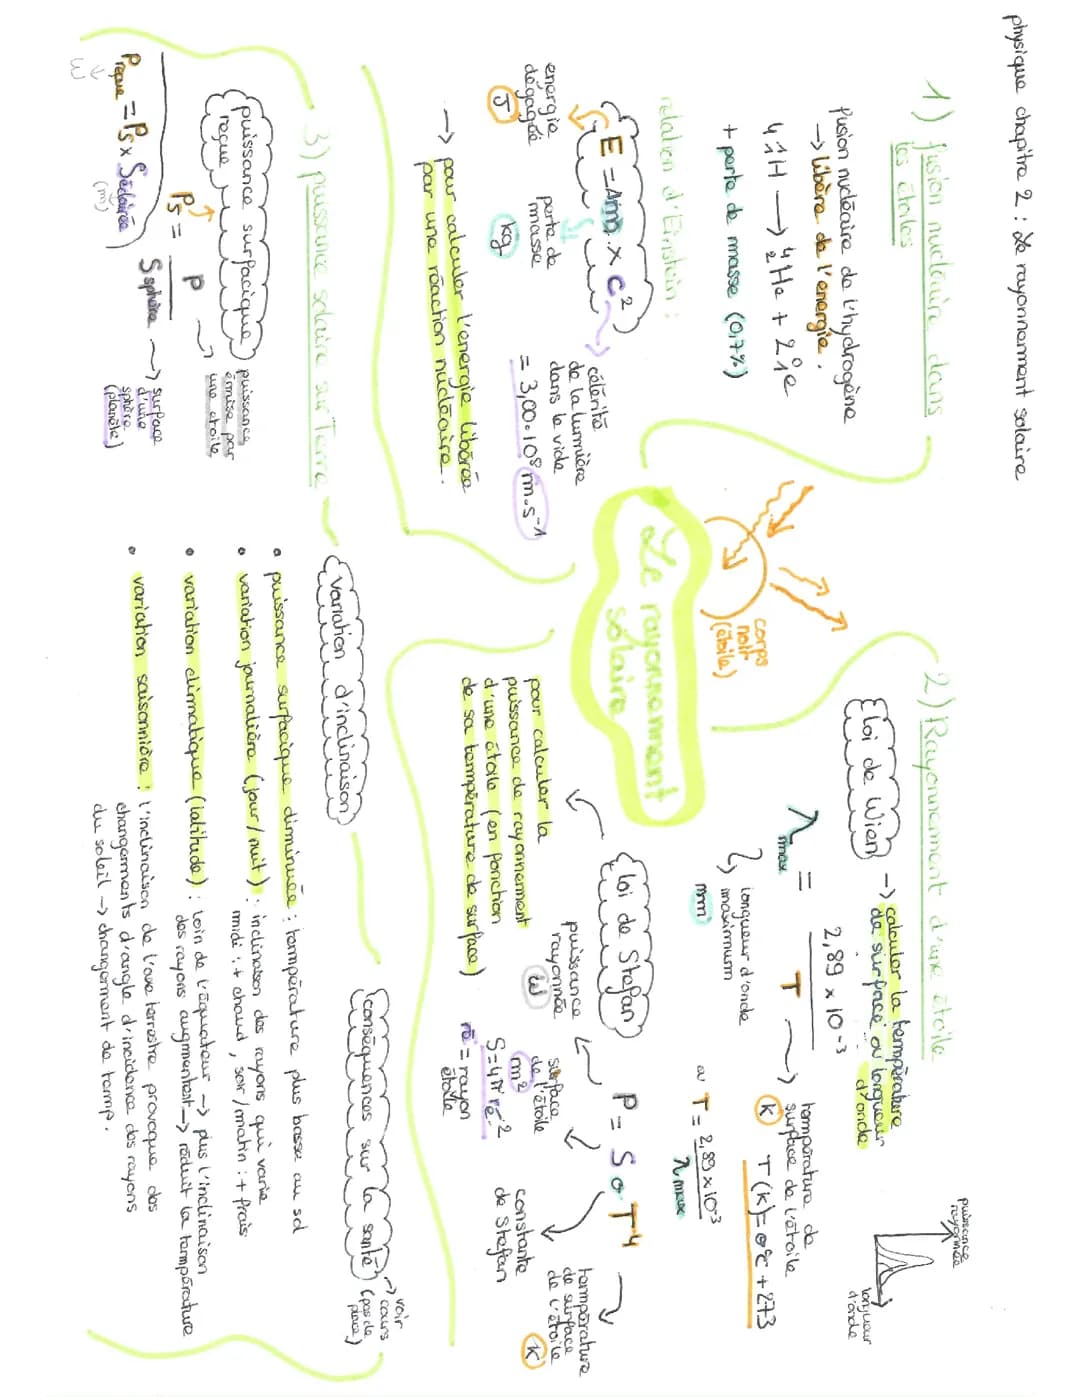 physique chapitre 2 : Le rayonnement solaire
1) fusion nucléaire dans
les étoiles
fusion nucléaire de l'hydrogène
→ libère de l'energie.
4 1/1 H → 4/2 He + 2 0/1 e
+ perte de masse (0,7%)
relation d'Einstein :
E = Δm × c²
énergie
dégagée
J
perte de
masse
kg
célérité
de la lumière
dans le vide
= 3,00.10⁸ m.s⁻¹
→ pour calculer l'energie libérée
par une réaction nucléaire.
Le rayonnement
solaire
corps
noir
(étoile)
2) Rayonnement d'une étoile
loi de Wien
→ calculer la température
de surface ou longueur
d'onde
puissance
rayonnée
longueur
d'onde
λmax = 2,89 × 10⁻³ / T
longueur d'onde
maximum
température de
surface de l'étoile
K
T(K)=0°C + 273
ou T = 2,89×10⁻³ / λmax
loi de Stefan
pour calculer la
puissance de rayonnement
d'une étoile (en fonction
de sa température de surface)
P = S σ T⁴
puissance
rayonnée
W
surface
de l'étoile
m²
S=4π ré²
ré = rayon
étoile
constante
de Stefan
température
de surface
de l'étoile
K
3) puissance solaire sur Terre
puissance surfacique
reçue
Ps = P / S sphère
puissance
émise par
une étoile
surface
d'une
sphère
(planète)
Preçue = Ps × Séclairée
W
(m)
variation d'inclinaison
• puissance surfacique diminuée : température plus basse au sol
• variation journalière (jour/nuit) : inclinaison des rayons qui varie
midi : + chaud, soir/matin : + frais
• variation climatique (latitude) : loin de l'équateur → plus l'inclinaison
des rayons augmentent → réduit la température
• variation saisonnière : l'inclinaison de l'axe terrestre provoque des
changements d'angle d'incidence des rayons
du soleil → changement de temp.
conséquences sur la santé
→ voir
cours
(pas de
place)